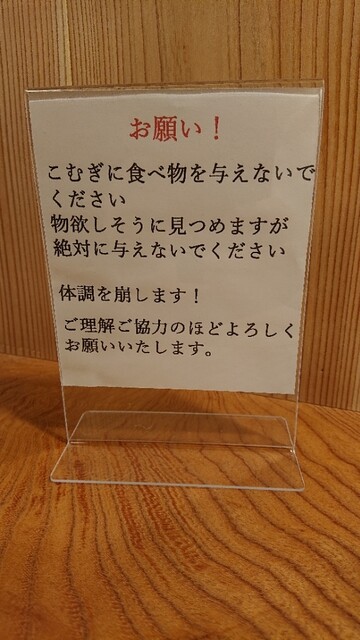 お願い！
こむぎに食べ物を与えないで
ください
物欲しそうに見つめますが
絶対に与えないでください
体調を崩します！
ご理解ご協力のほどよろしく
お願いいたします。